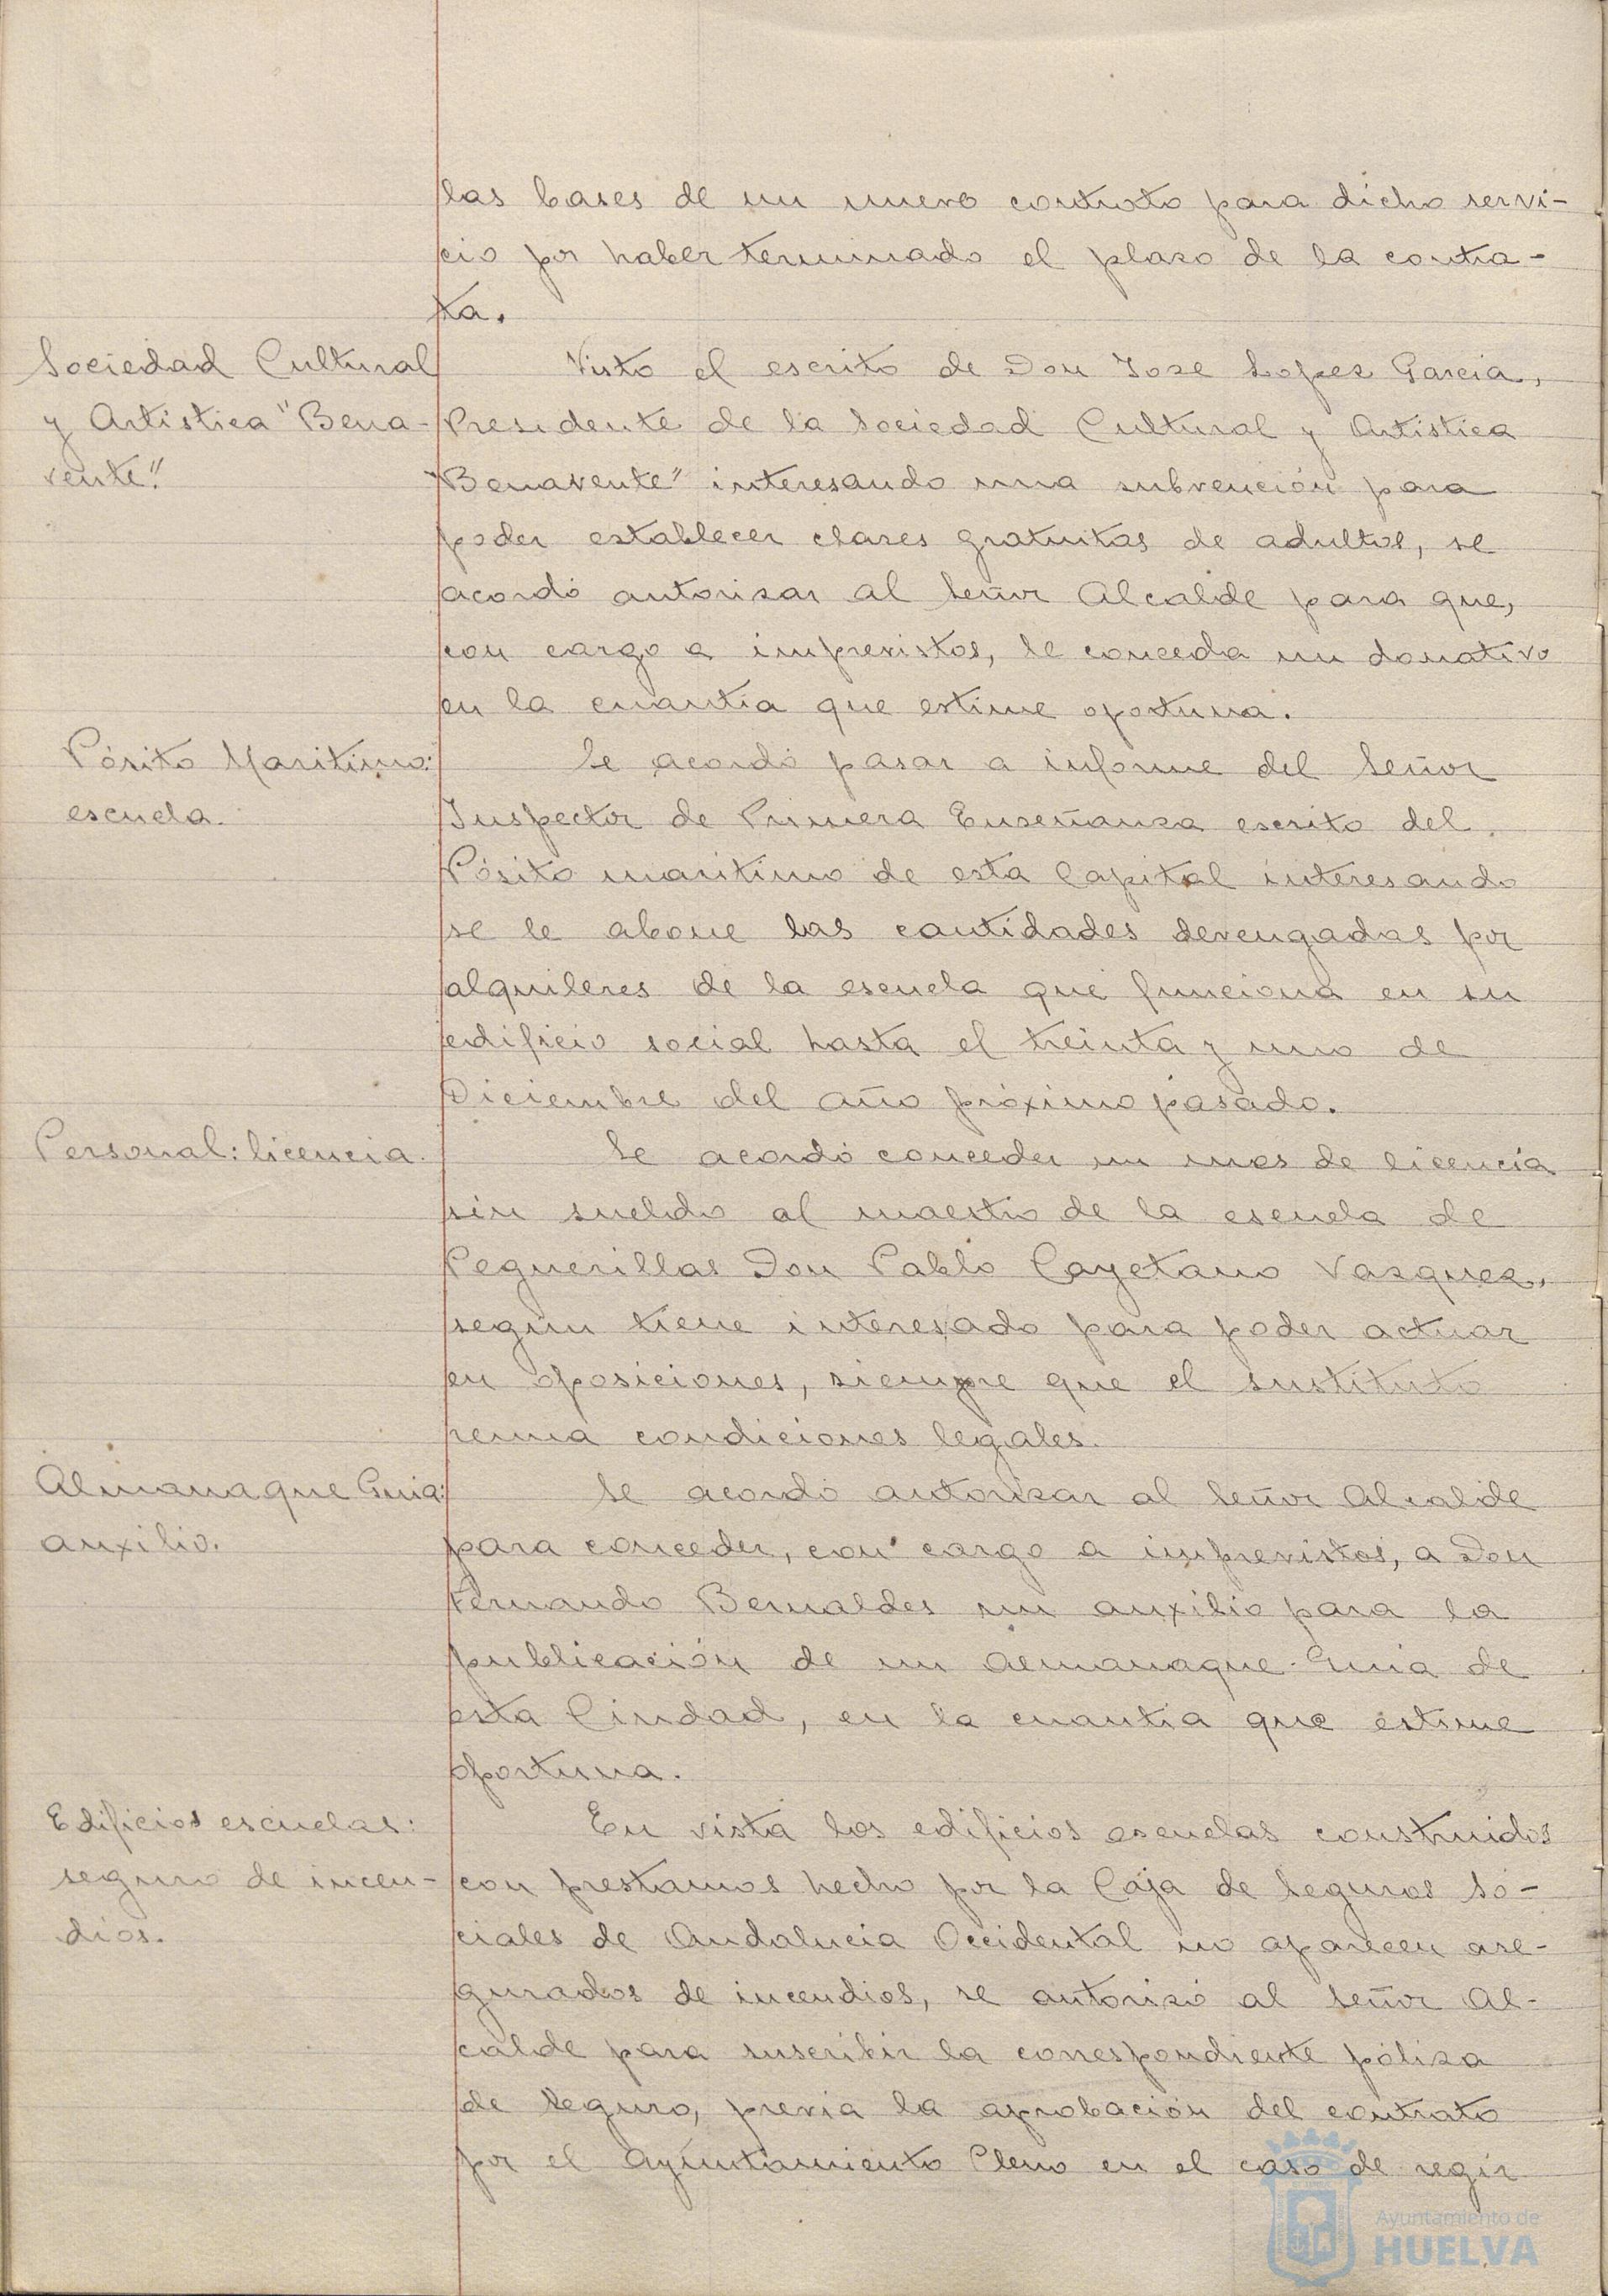 las bases de un nuevo contrato para dicho servi-
cio por haber terminado el plazo de la contra-
ta.
Sociedad Cultural
y Artistica "Bena-
vente".
Visto el escrito de Don Jose Lopez Garcia,
Presidente de la Sociedad Cultural y Artistica
"Benavente" interesando una subvención para
poder establecer clases gratuitas de adultos, se
acordó autorizar al Señor Alcalde para que,
con cargo a imprevistos, le conceda un donativo
en la cuantia que estime oportuna.
Pósito Maritimo:
escuela.
Se acordó pasar a informe del Señor
Inspector de Primera Enseñanza escrito del
Pósito maritimo de esta Capital interesando
se le abone las cantidades devengadas por
alquileres de la escuela que funciona en su
edificio social hasta el treinta y uno de
Diciembre del año próximo pasado.
Personal: licencia.
Se acordó conceder un mes de licencia
sin sueldo al maestro de la escuela de
Peguerillas Don Pablo Cayetano Vazquez,
según tiene interesado para poder actuar
en oposiciones, siempre que el sustituto
reuna condiciones legales.
Almanaque Guia:
auxilio.
Se acordó autorizar al Señor Alcalde
para conceder, con cargo a imprevistos, a Don
Fernando Bernaldes un auxilio para la
publicación de un Almanaque-Guia de
esta Ciudad, en la cuantia que estime
oportuna.
Edificios escuelas:
seguro de incen-
dios.
En vista los edificios escuelas construidos
con prestamos hecho por la Caja de Seguros So-
ciales de Andalucia Occidental no aparecen ase-
gurados de incendios, se autorizó al Señor Al-
calde para suscribir la correspondiente póliza
de Seguro, previa la aprobación del contrato
por el Ayuntamiento Pleno en el caso de regir
Ayuntamiento de
HUELVA